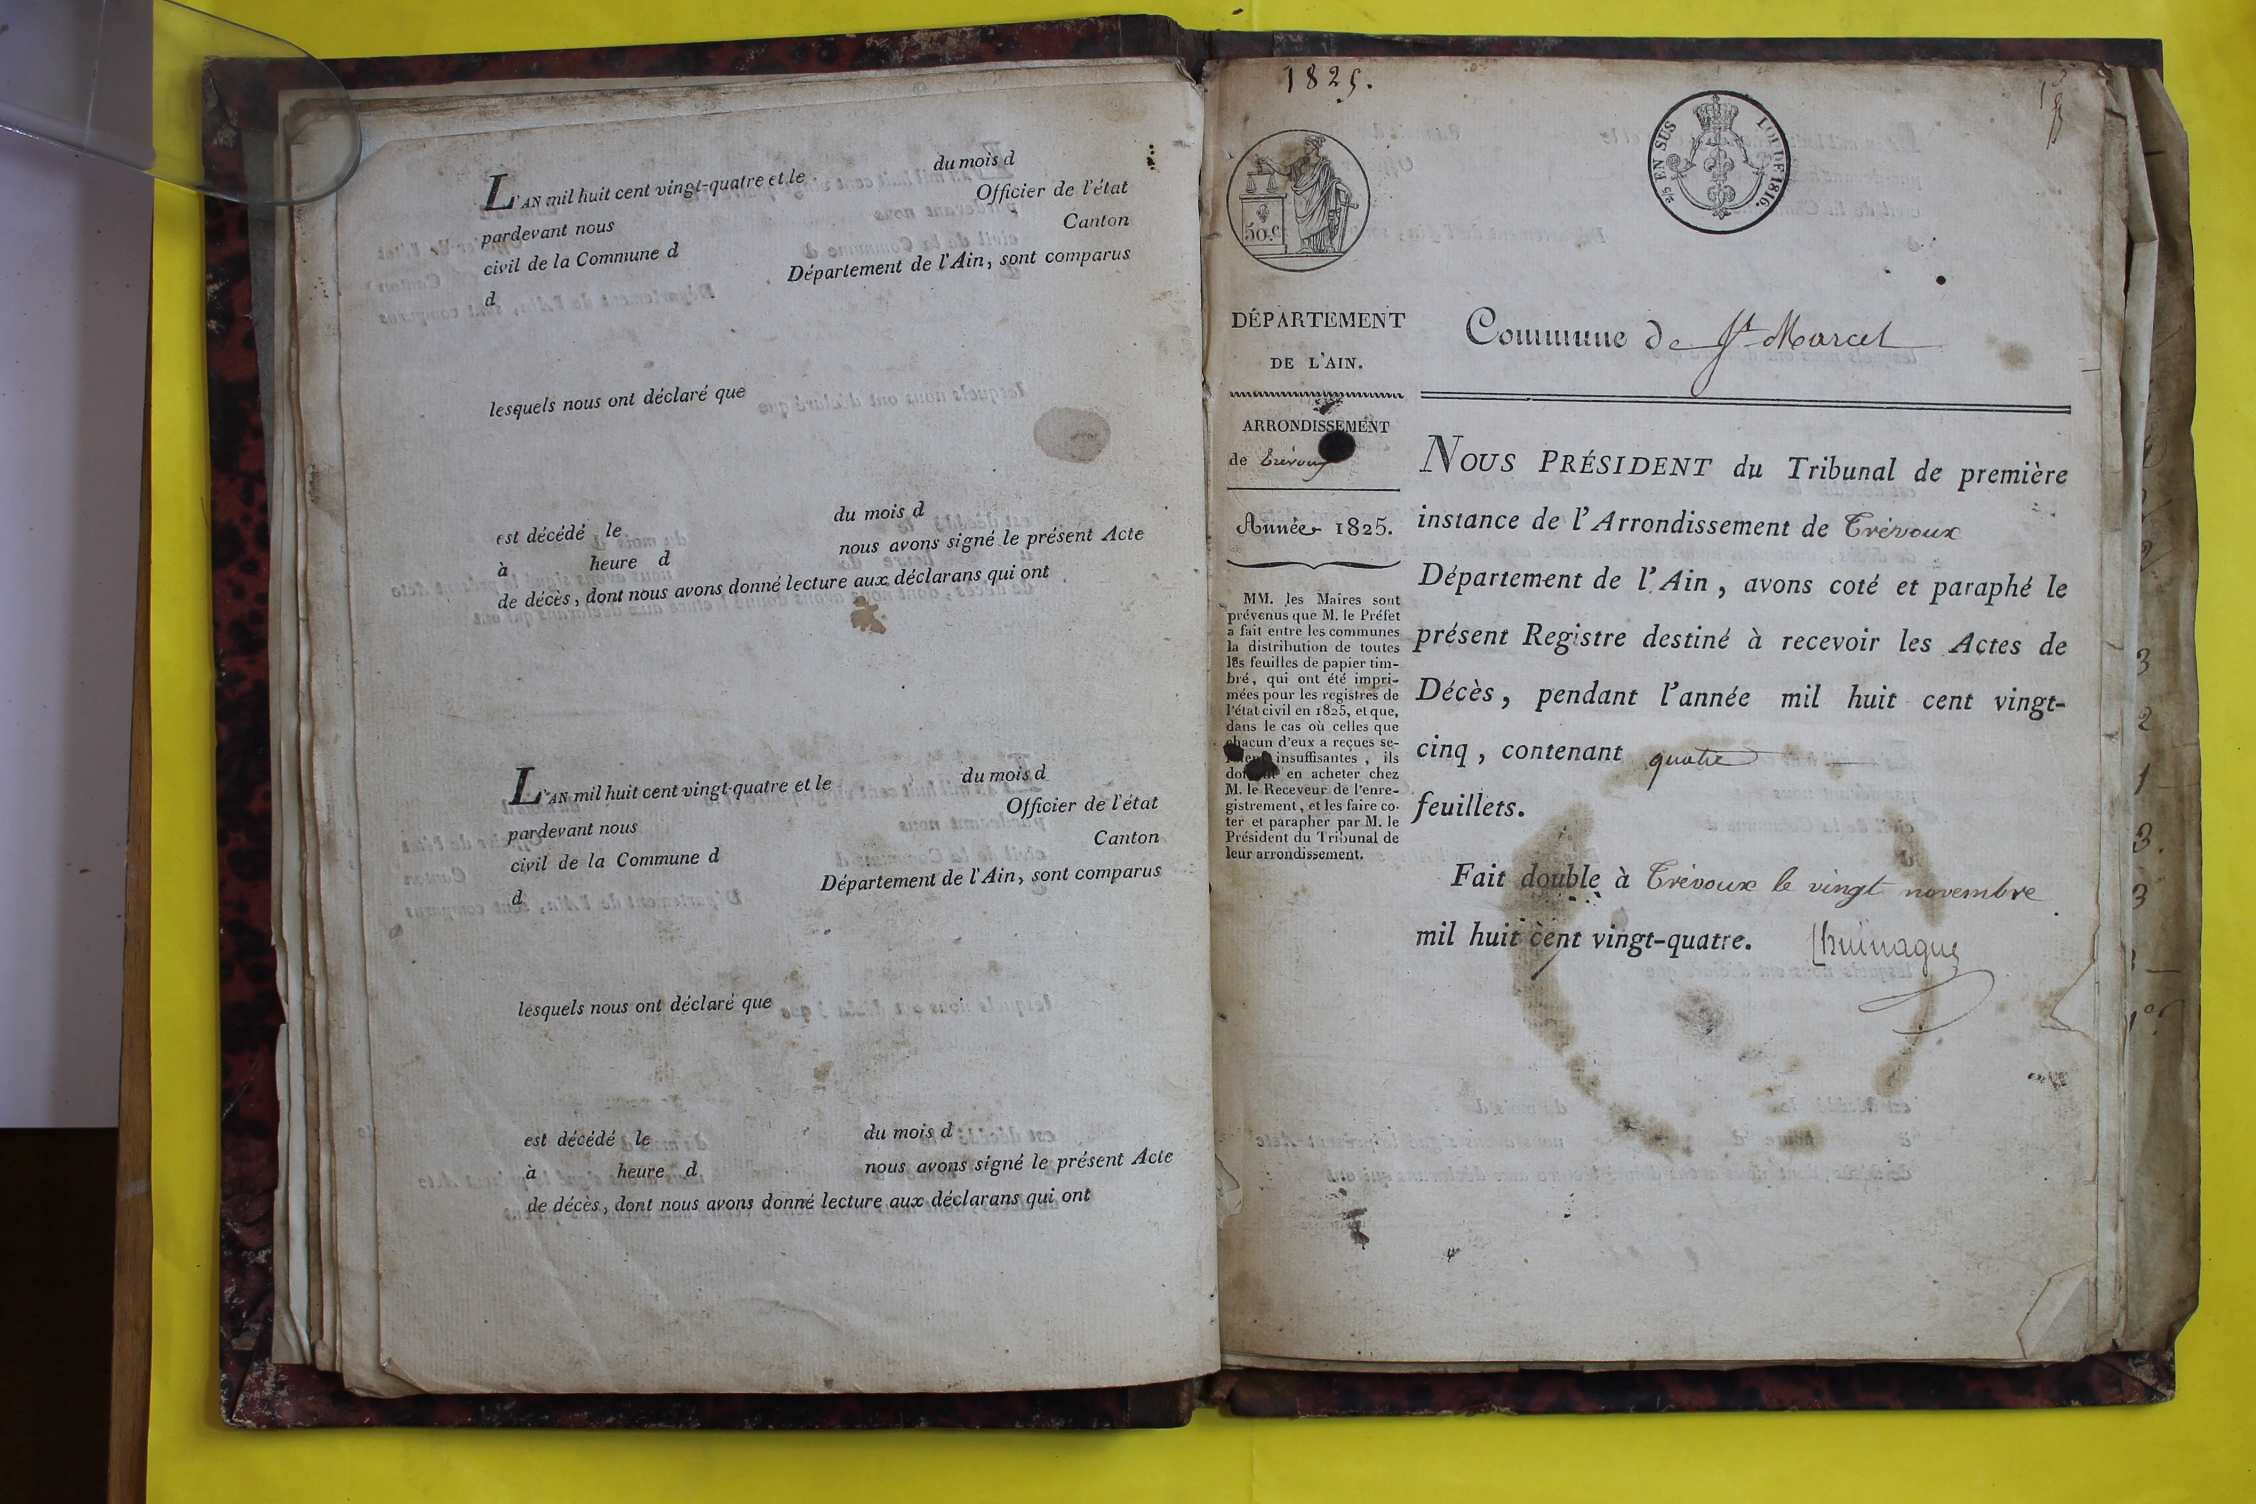 L'AN mil huit cent vingt-quatre et le du mois d
pardevant nous Officier de l'état
civil de la Commune d Canton
d Département de l'Ain, sont comparus
lesquels nous ont déclaré que
est décédé le du mois d
à heure d nous avons signé le présent Acte
de décès, dont nous avons donné lecture aux déclarans qui ont
L'AN mil huit cent vingt-quatre et le du mois d
pardevant nous Officier de l'état
civil de la Commune d Canton
d Département de l'Ain, sont comparus
lesquels nous ont déclaré que
est décédé le du mois d
à heure d nous avons signé le présent Acte
de décès, dont nous avons donné lecture aux déclarans qui ont
1825.
50.c
2/5 EN SUS
LOI DE 1816.
DÉPARTEMENT
DE L'AIN.
ARRONDISSEMENT
de Trévoux
Année 1825.
MM. les Maires sont
prévenus que M. le Préfet
a fait entre les communes
la distribution de toutes
les feuilles de papier tim-
bré, qui ont été impri-
mées pour les registres de
l'état civil en 1825, et que,
dans le cas où celles que
chacun d'eux a reçues se-
insuffisantes, ils
en acheter chez
M. le Receveur de l'enre-
gistrement, et les faire co-
ter et parapher par M. le
Président du Tribunal de
leur arrondissement.
Commune de St Marcel
NOUS PRÉSIDENT du Tribunal de première
instance de l'Arrondissement de Trévoux
Département de l'Ain, avons coté et paraphé le
présent Registre destiné à recevoir les Actes de
Décès, pendant l'année mil huit cent vingt-
cinq, contenant quatre
feuillets.
Fait double à Trévoux le vingt novembre
mil huit cent vingt-quatre.
3
2
1
3.
3